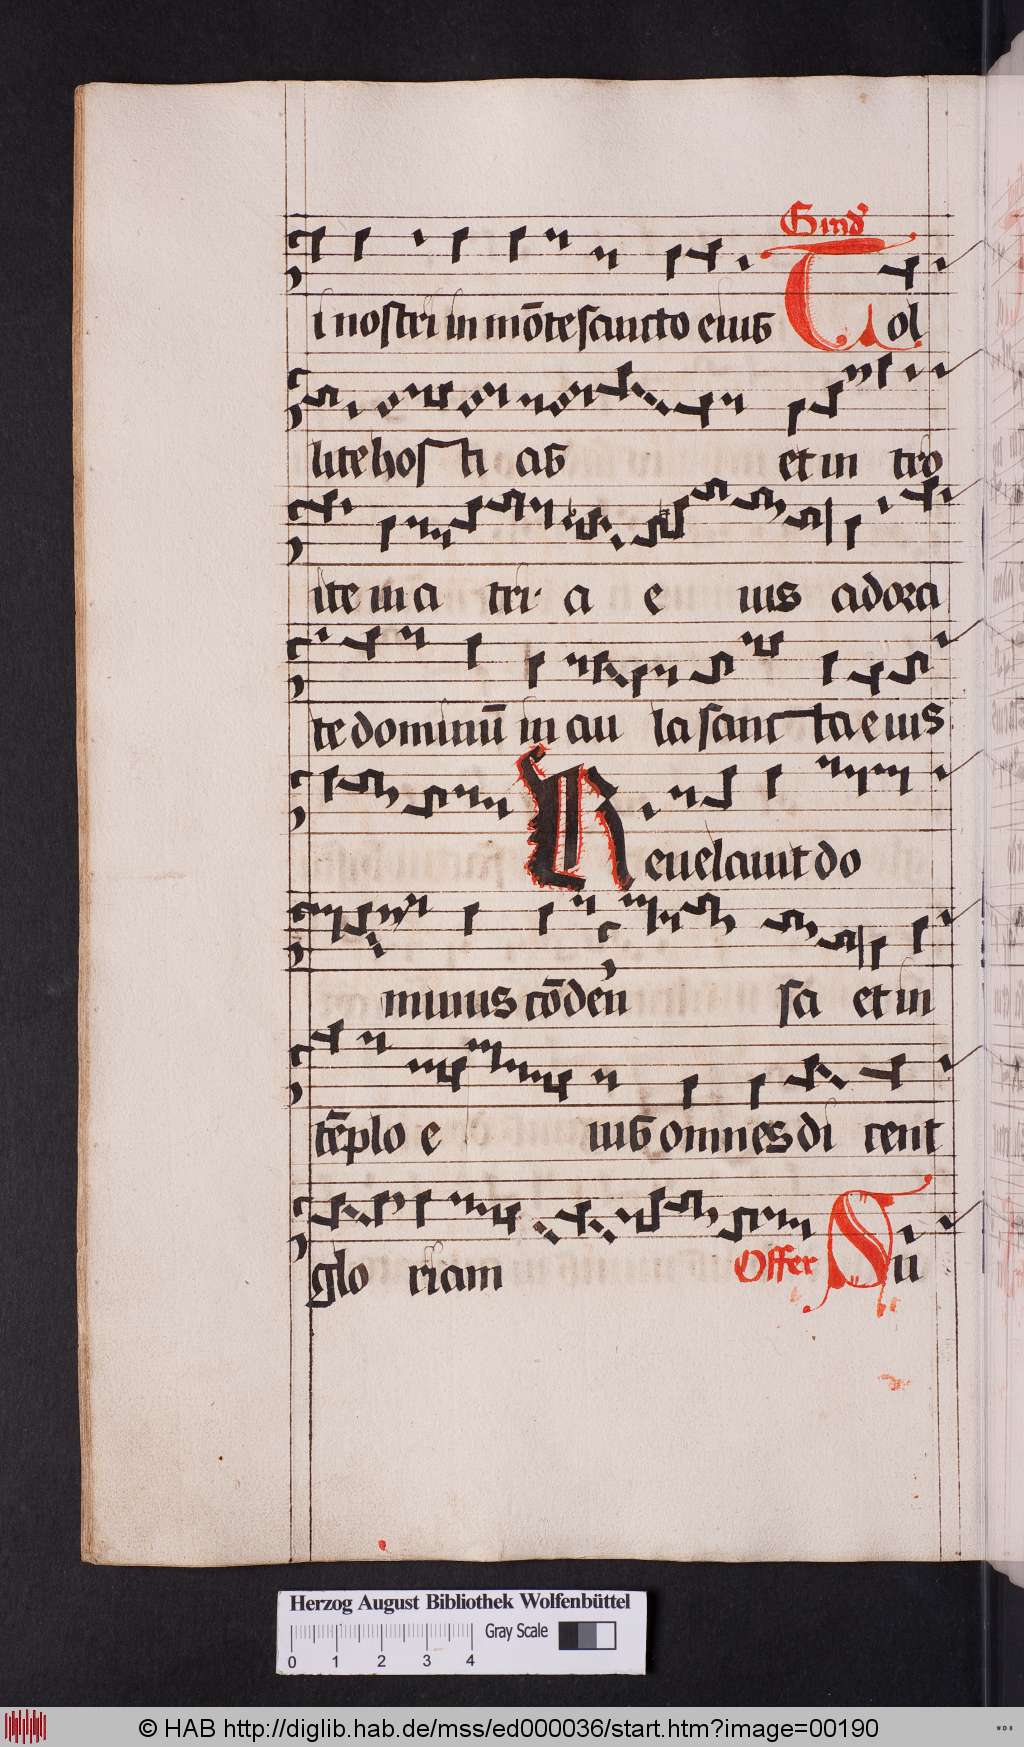 Grad᷒
i nostri in mōte sancto eius Tol
lite hos ti as et in tro
ite in a tri a e ius adora
te dominū in au la sanc ta eius
Reuelauit do
minus cōden sa et in
tēplo e ius omnes di cent
glo riam Offer Si
Herzog August Bibliothek Wolfenbüttel
0 1 2 3 4 Gray Scale
© HAB http://diglib.hab.de/mss/ed000036/start.htm?image=00190